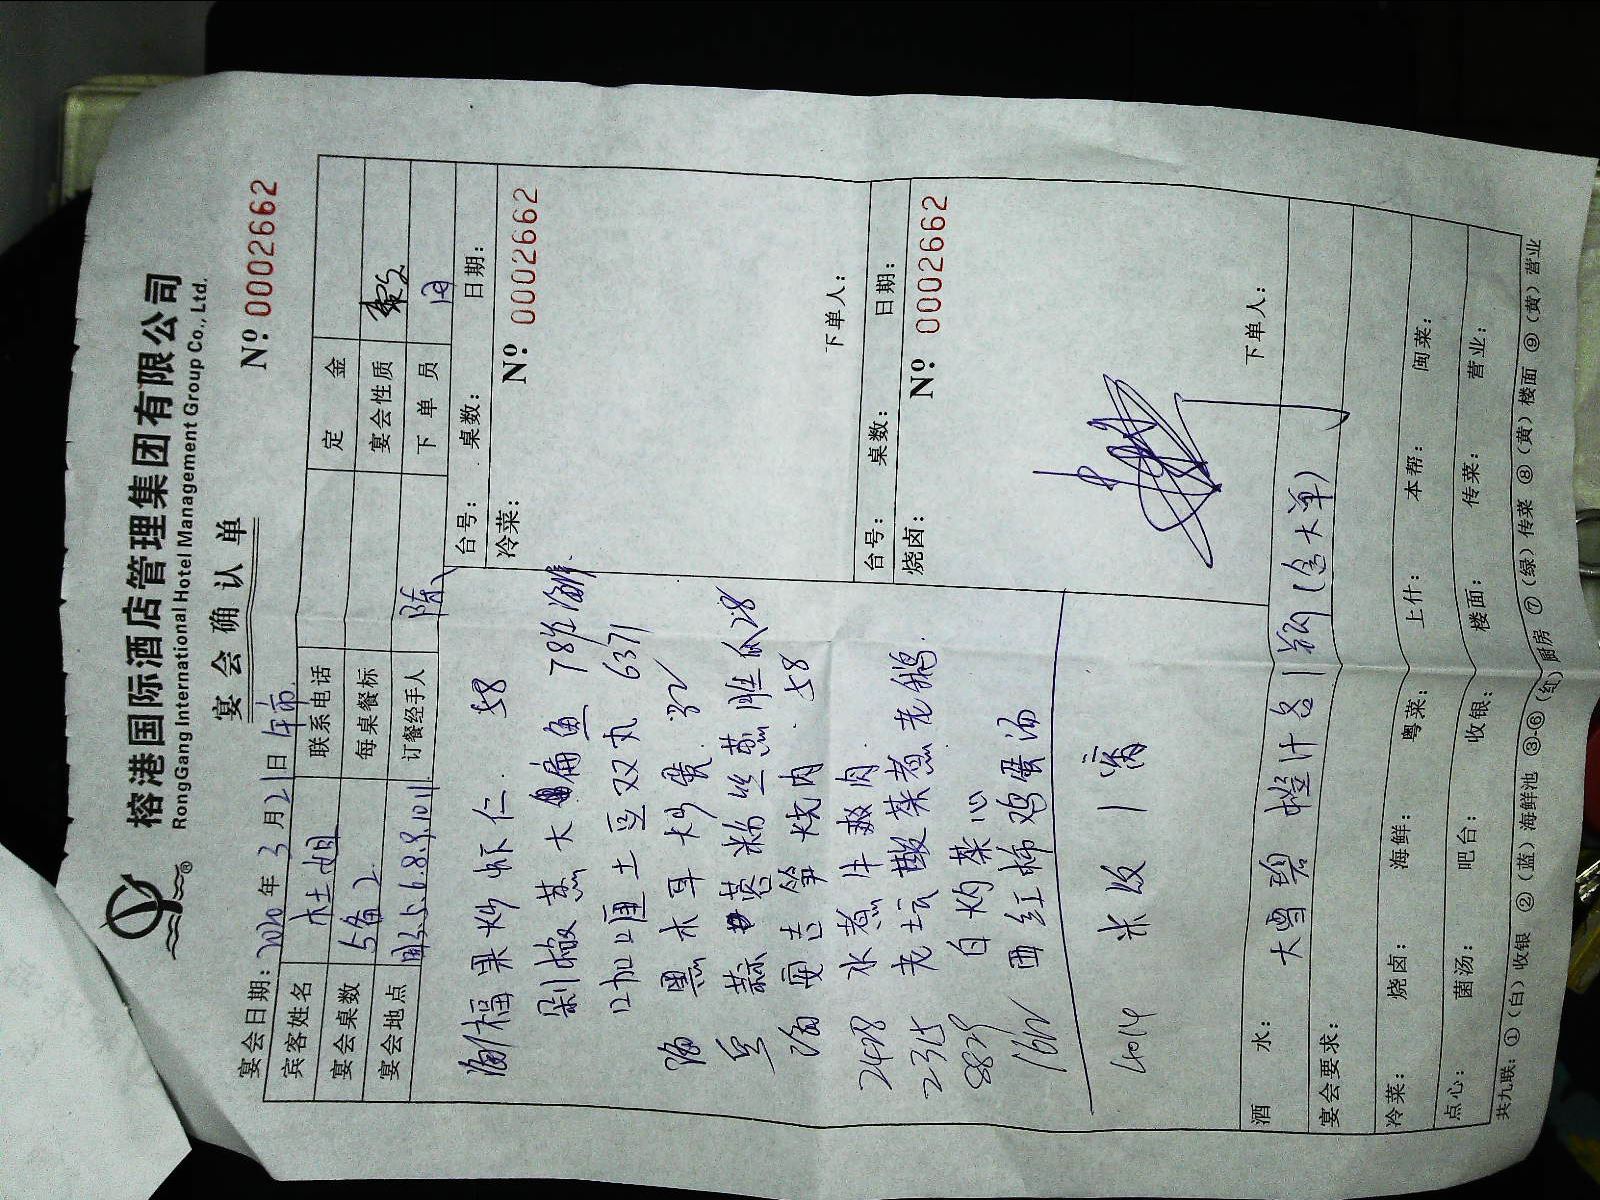 榕港国际酒店管理集团有限公司
RongGang International Hotel Management Group Co., Ltd.
®
宴会确认单
Nº 0002662
宴会日期: 2020年 3月21日 午市
宾客姓名 联系电话 定金
宴会桌数 5备2 每桌餐标 宴会性质
宴会地点 订餐经手人 陈 下单员
台号: 桌数: 日期:
冷菜: Nº 0002662
福果炒虾仁 58
剁椒蒸大扁鱼 78
咖喱土豆双丸 6371
黑木耳炒 32
蒜蓉粉丝蒸 28
安吉笋烧肉 58
2428 水煮牛爽肉
2315 老坛酸菜煮老鹅
8829 白灼菜心
1612 西红柿鸡蛋汤
4014 米饭 1
下单人:
台号: 桌数: 日期:
烧卤: Nº 0002662
下单人:
酒水: 大雪碧 橙汁各1 (送大单)
宴会要求:
冷菜: 烧卤: 海鲜: 粤菜: 上什: 本帮: 闽菜:
点心: 菌汤: 吧台: 收银: 楼面: 传菜: 营业:
共九联: ①(白)收银 ②(蓝)海鲜池 ③-⑥(红)厨房 ⑦(绿)传菜 ⑧(黄)楼面 ⑨(黄)营业